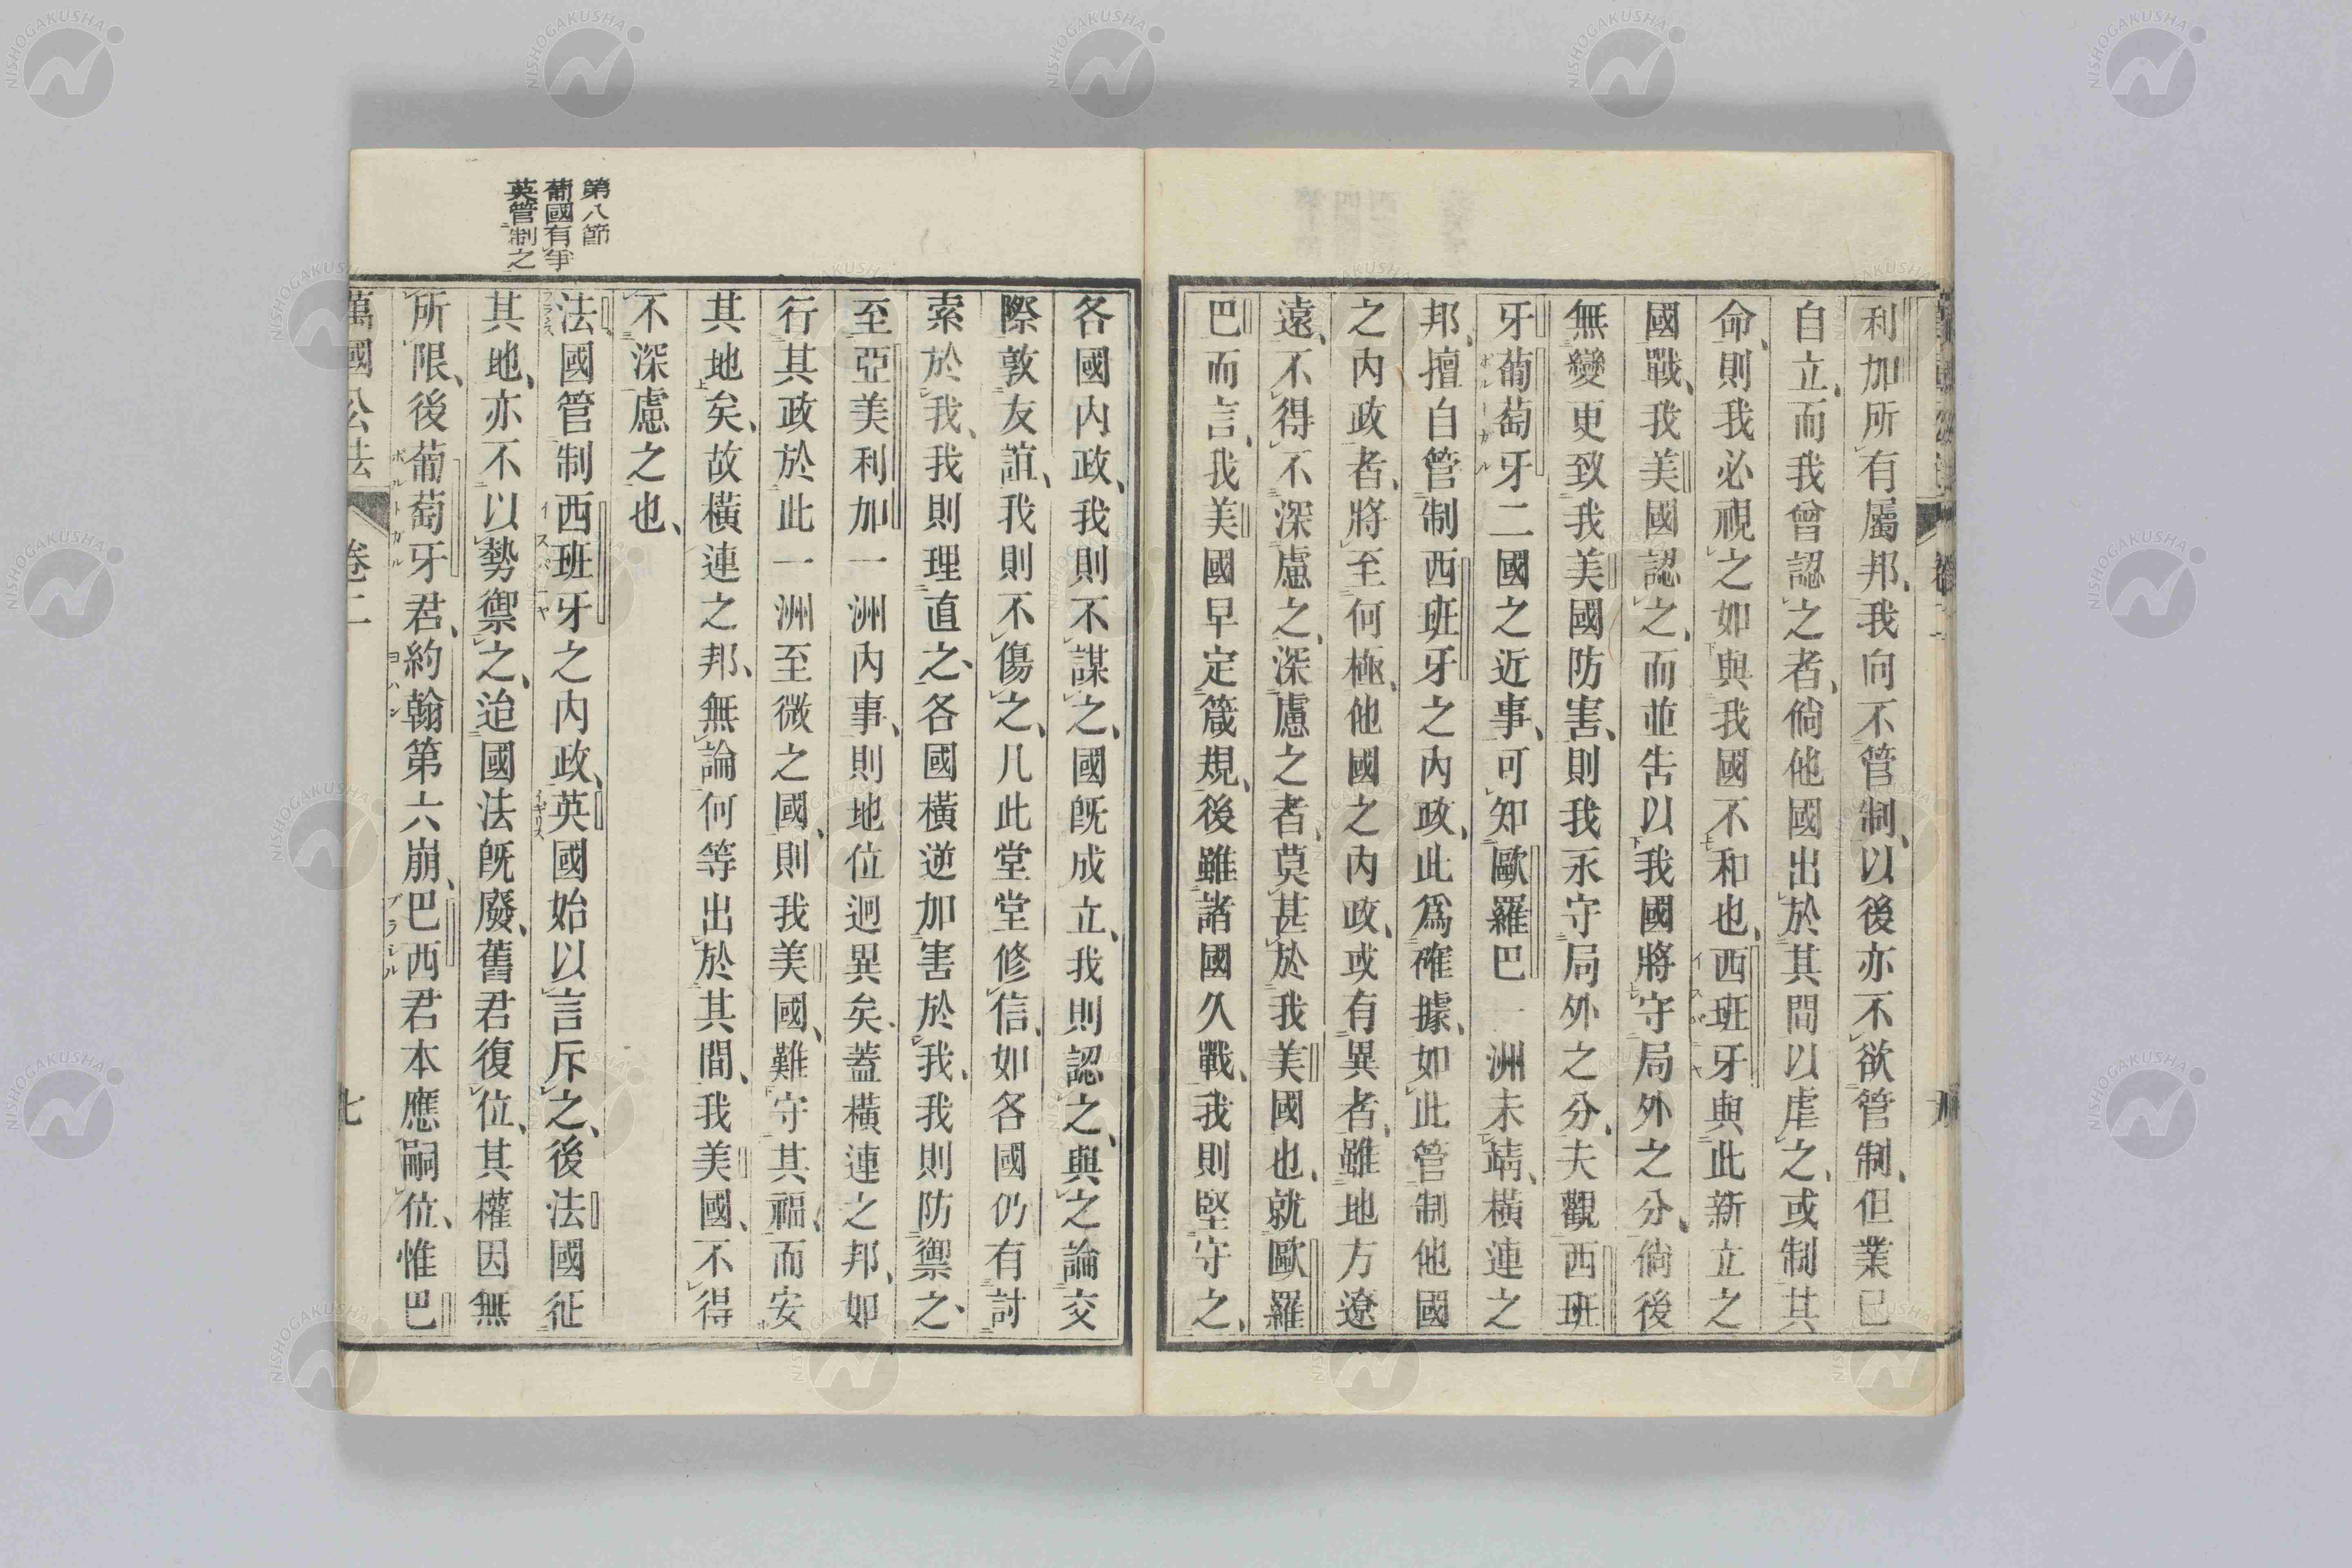 利加所有屬邦、我向不管制、以後亦不欲管制、但業已
自立、而我曾認之者、倘他國出於其間以虐之、或制其
命、則我必視之如與我國不和也、西班牙與此新立之
國戰、我美國認之、而並告以我國將守局外之分、倘後
無變更致我美國防害、則我永守局外之分、夫觀西班
牙葡萄牙二國之近事、可知歐羅巴一洲未靖、橫連之
邦、擅自管制西班牙之內政、此爲確據、如此管制他國
之內政者、將至何極、他國之內政、或有異者、雖地方遼
遠、不得不深慮之、深慮之者、莫甚於我美國也、就歐羅
巴而言、我美國早定箴規、後雖諸國久戰、我則堅守之、
各國內政、我則不謀之、國旣成立、我則認之、與之論交
際敦友誼、我則不傷之、凡此堂堂修信、如各國仍有討
索於我、我則理直之、各國橫逆加害於我、我則防禦之、
至亞美利加一洲內事、則地位迥異矣、蓋橫連之邦、如
行其政於此一洲至微之國、則我美國、難守其福、而安
其地矣、故橫連之邦、無論何等出於其間、我美國、不得
不深慮之也、
第八節
葡國有爭
英管制之
法國管制西班牙之內政、英國始以言斥之、後法國征
其地、亦不以勢禦之、迨國法旣廢、舊君復位、其權因無
所限、後葡萄牙君、約翰第六崩、巴西君本應嗣位、惟巴
萬國公法 卷二 七
NISHOGAKUSHA